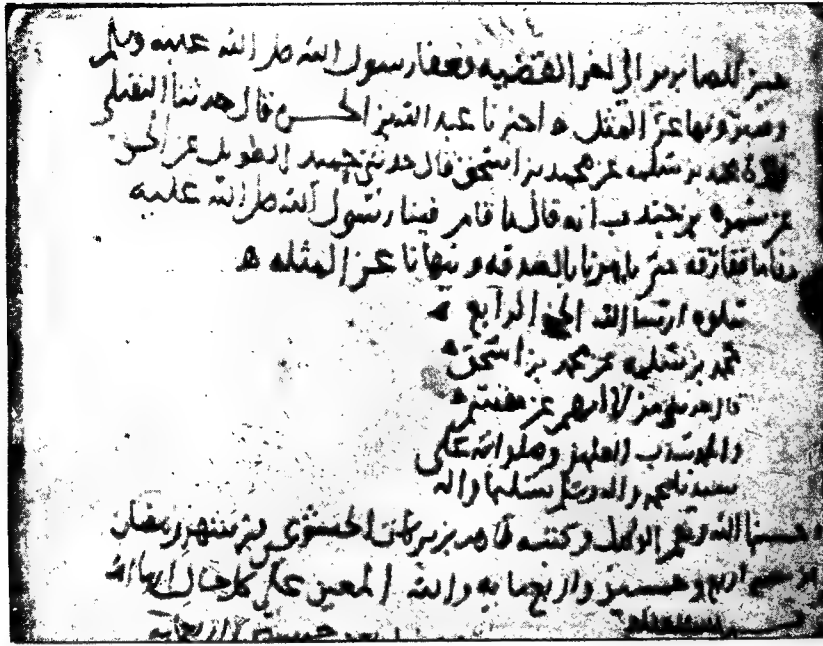 ١١٤
الى اخر القضيه فعفا رسول الله صلى الله عليه وسلم
وصبر ونها عن المثل ه اخبرنا عبد الله بن الحسن قال حدثنا النفيلي
محمد بن سلمه عن محمد بن اسحق قال حدثني حميد الطويل عن الحسن
عن سمره بن جندب انه قال ما قام فينا رسول الله صلى الله عليه
مقاما ففارقه حتى يامرنا بالصدقه وينهانا عن المثله ه
يتلوه ان شا الله الجز الرابع
محمد بن سلمه عن محمد بن اسحق
قال حدثني من لا اتهم عن مقسم
والحمد لله رب العلمين وصلواته على
سيدنا محمد واله وسلم تسليما
وحسبنا الله ونعم الوكيل وكتبه طاهر بن بركات الخشوعي في شهر رمضان
من سنه اربع وخمسين واربع مايه والله المعين على كل حال ان شا الله